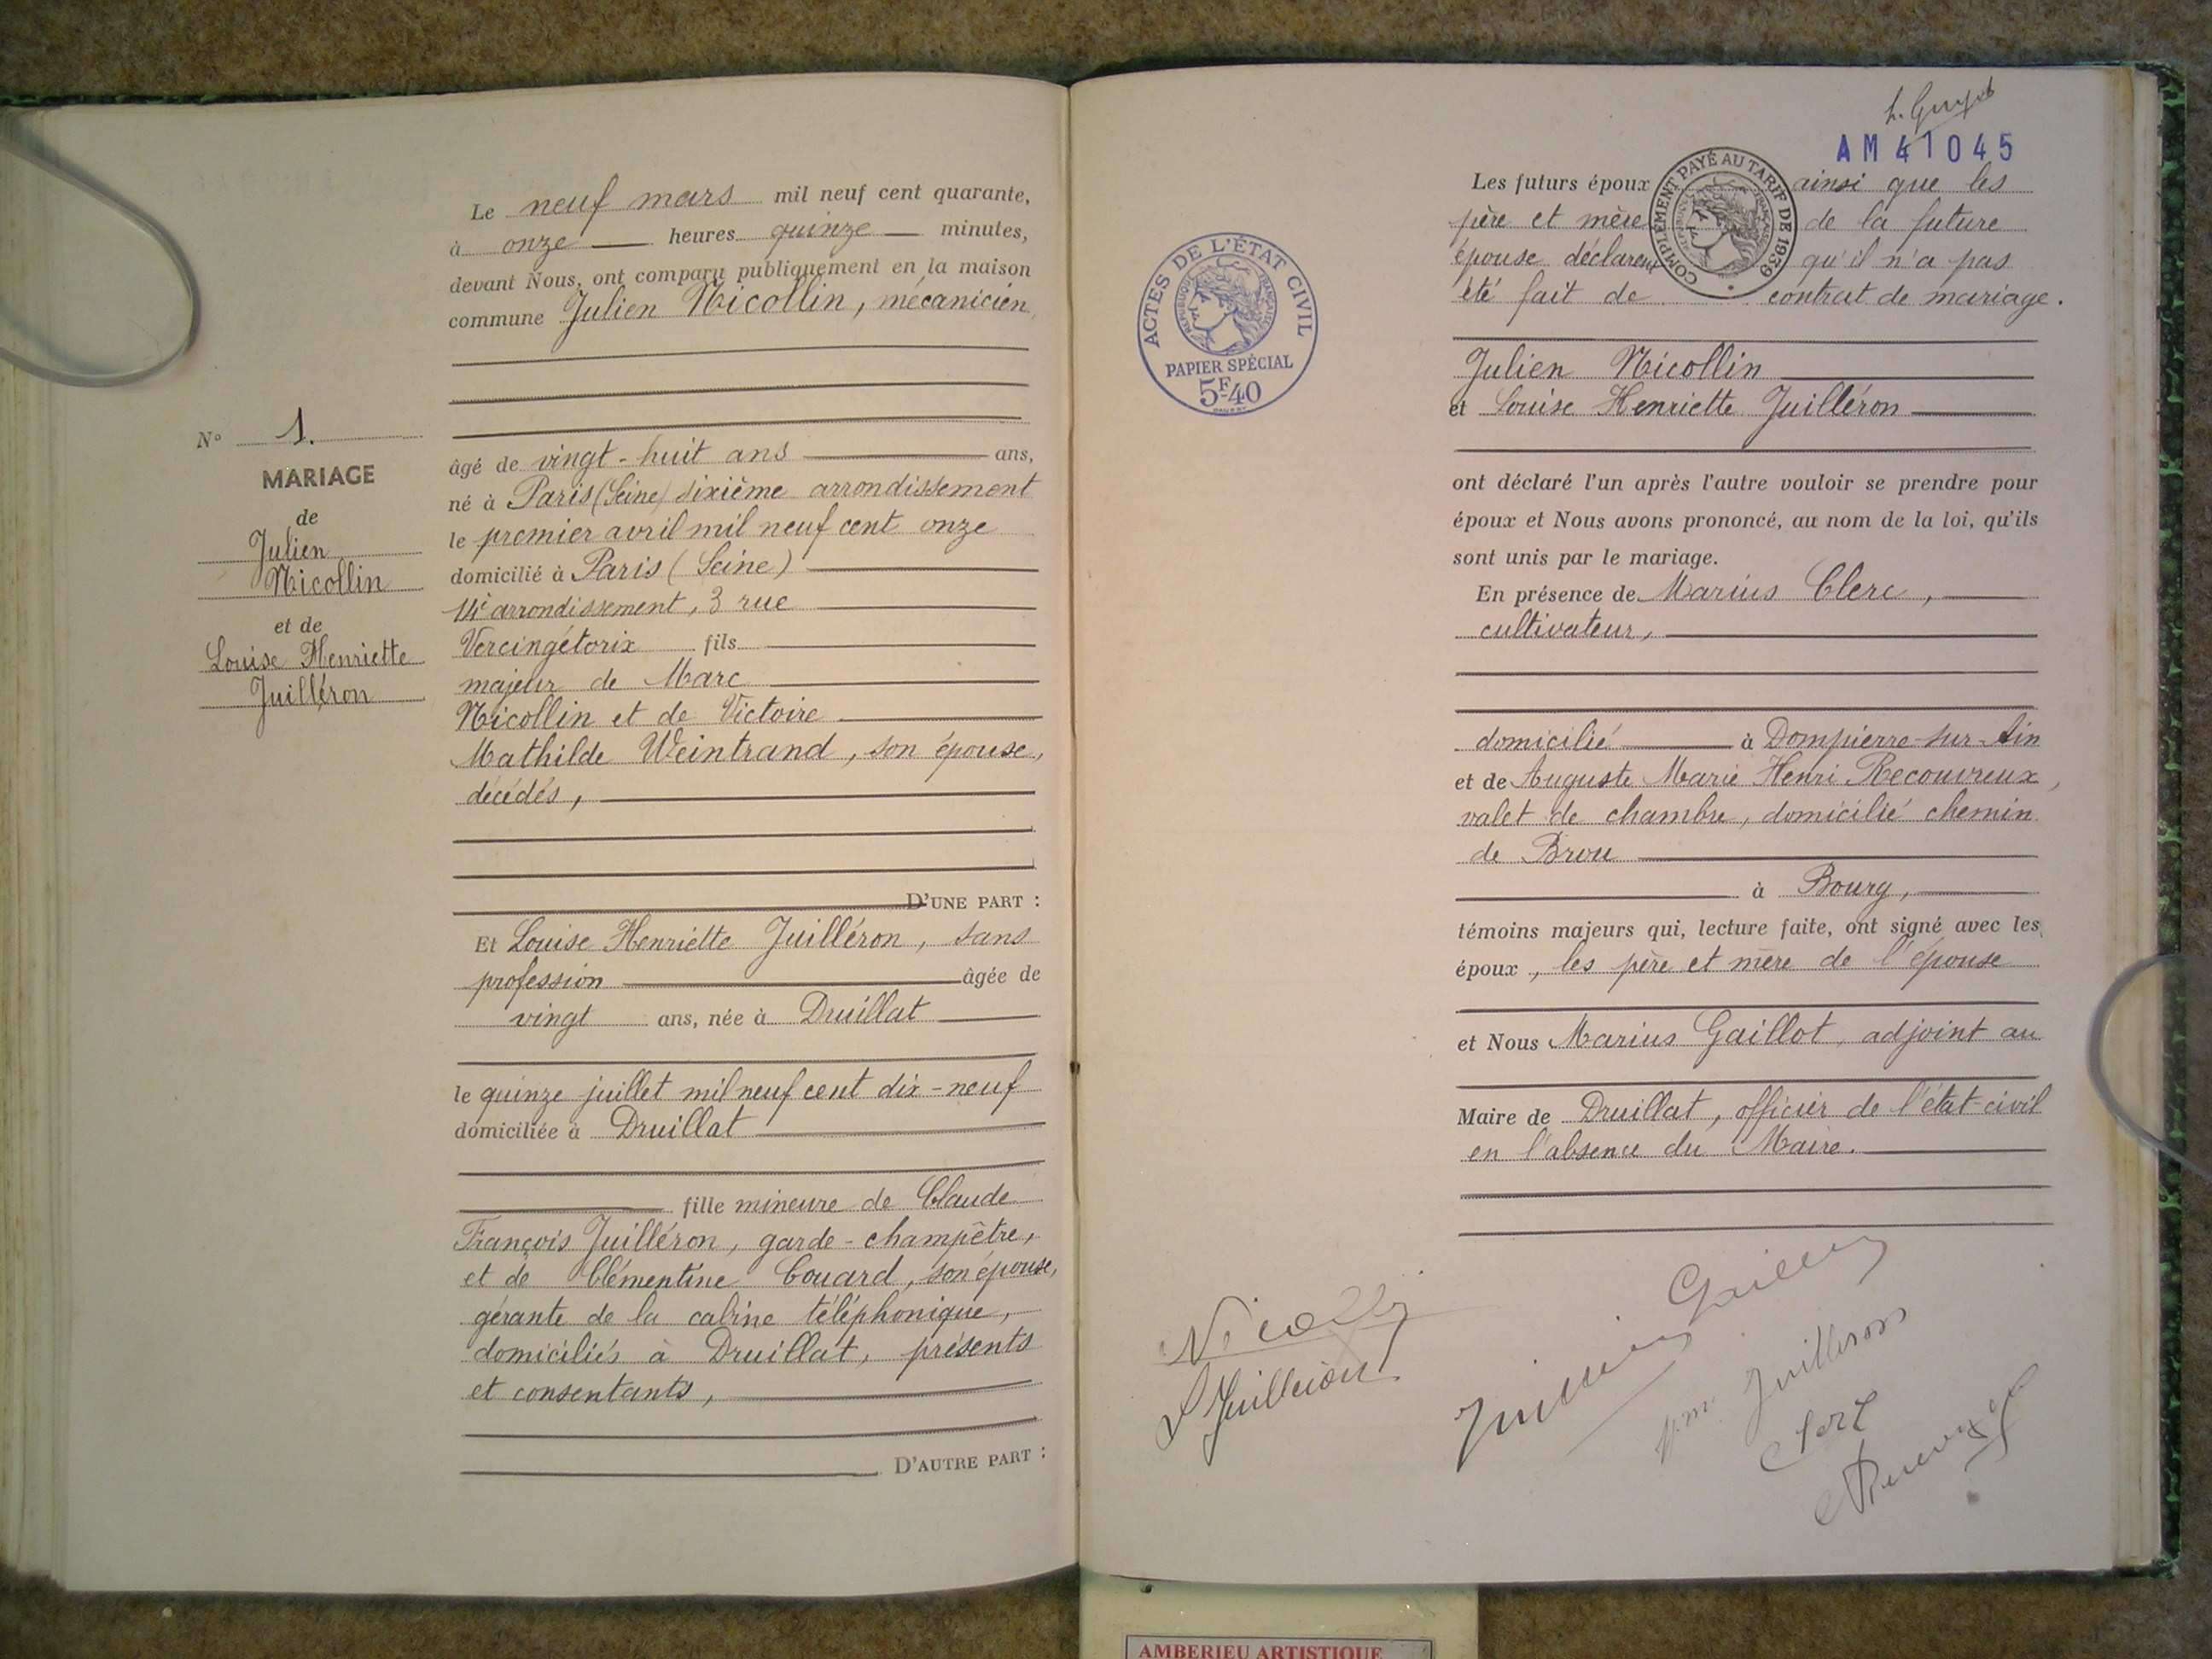 Le neuf mars mil neuf cent quarante,
à onze heures quinze minutes,
devant Nous, ont comparu publiquement en la maison
commune Julien Nicollin, mécanicien,
N° 1.
MARIAGE
de
Julien
Nicollin
et de
Louise Henriette
Juilléron
âgé de vingt-huit ans ans,
né à Paris (Seine) sixième arrondissement
le premier avril mil neuf cent onze
domicilié à Paris (Seine)
14e arrondissement, 3 rue
Vercingétorix fils
majeur de Marc
Nicollin et de Victoire
Mathilde Weintrand, son épouse,
décédés,
D'UNE PART :
Et Louise Henriette Juilléron, sans
profession âgée de
vingt ans, née à Druillat
le quinze juillet mil neuf cent dix-neuf
domiciliée à Druillat
fille mineure de Claude
François Juilléron, garde-champêtre,
et de Clémentine Couard, son épouse,
gérante de la cabine téléphonique,
domiciliés à Druillat, présents
et consentants,
D'AUTRE PART :
ACTES DE L'ÉTAT CIVIL
RÉPUBLIQUE FRANÇAISE
PAPIER SPÉCIAL
5F40
AM 41045
COMPLÉMENT PAYÉ AU TARIF DE 1939
Les futurs époux ainsi que les
père et mère de la future
épouse déclarent qu'il n'a pas
été fait de contrat de mariage.
Julien Nicollin
et Louise Henriette Juilléron
ont déclaré l'un après l'autre vouloir se prendre pour
époux et Nous avons prononcé, au nom de la loi, qu'ils
sont unis par le mariage.
En présence de Marius Clerc,
cultivateur,
domicilié à Dompierre-sur-Ain
et de Auguste Marie Henri Recouvreux,
valet de chambre, domicilié chemin
de Brou
à Bourg,
témoins majeurs qui, lecture faite, ont signé avec les
époux, les père et mère de l'épouse
et Nous Marius Gaillot, adjoint au
Maire de Druillat, officier de l'état-civil
en l'absence du Maire.
L Juilleron
Juilleron
Clerc
AMBERIEU ARTISTIQUE